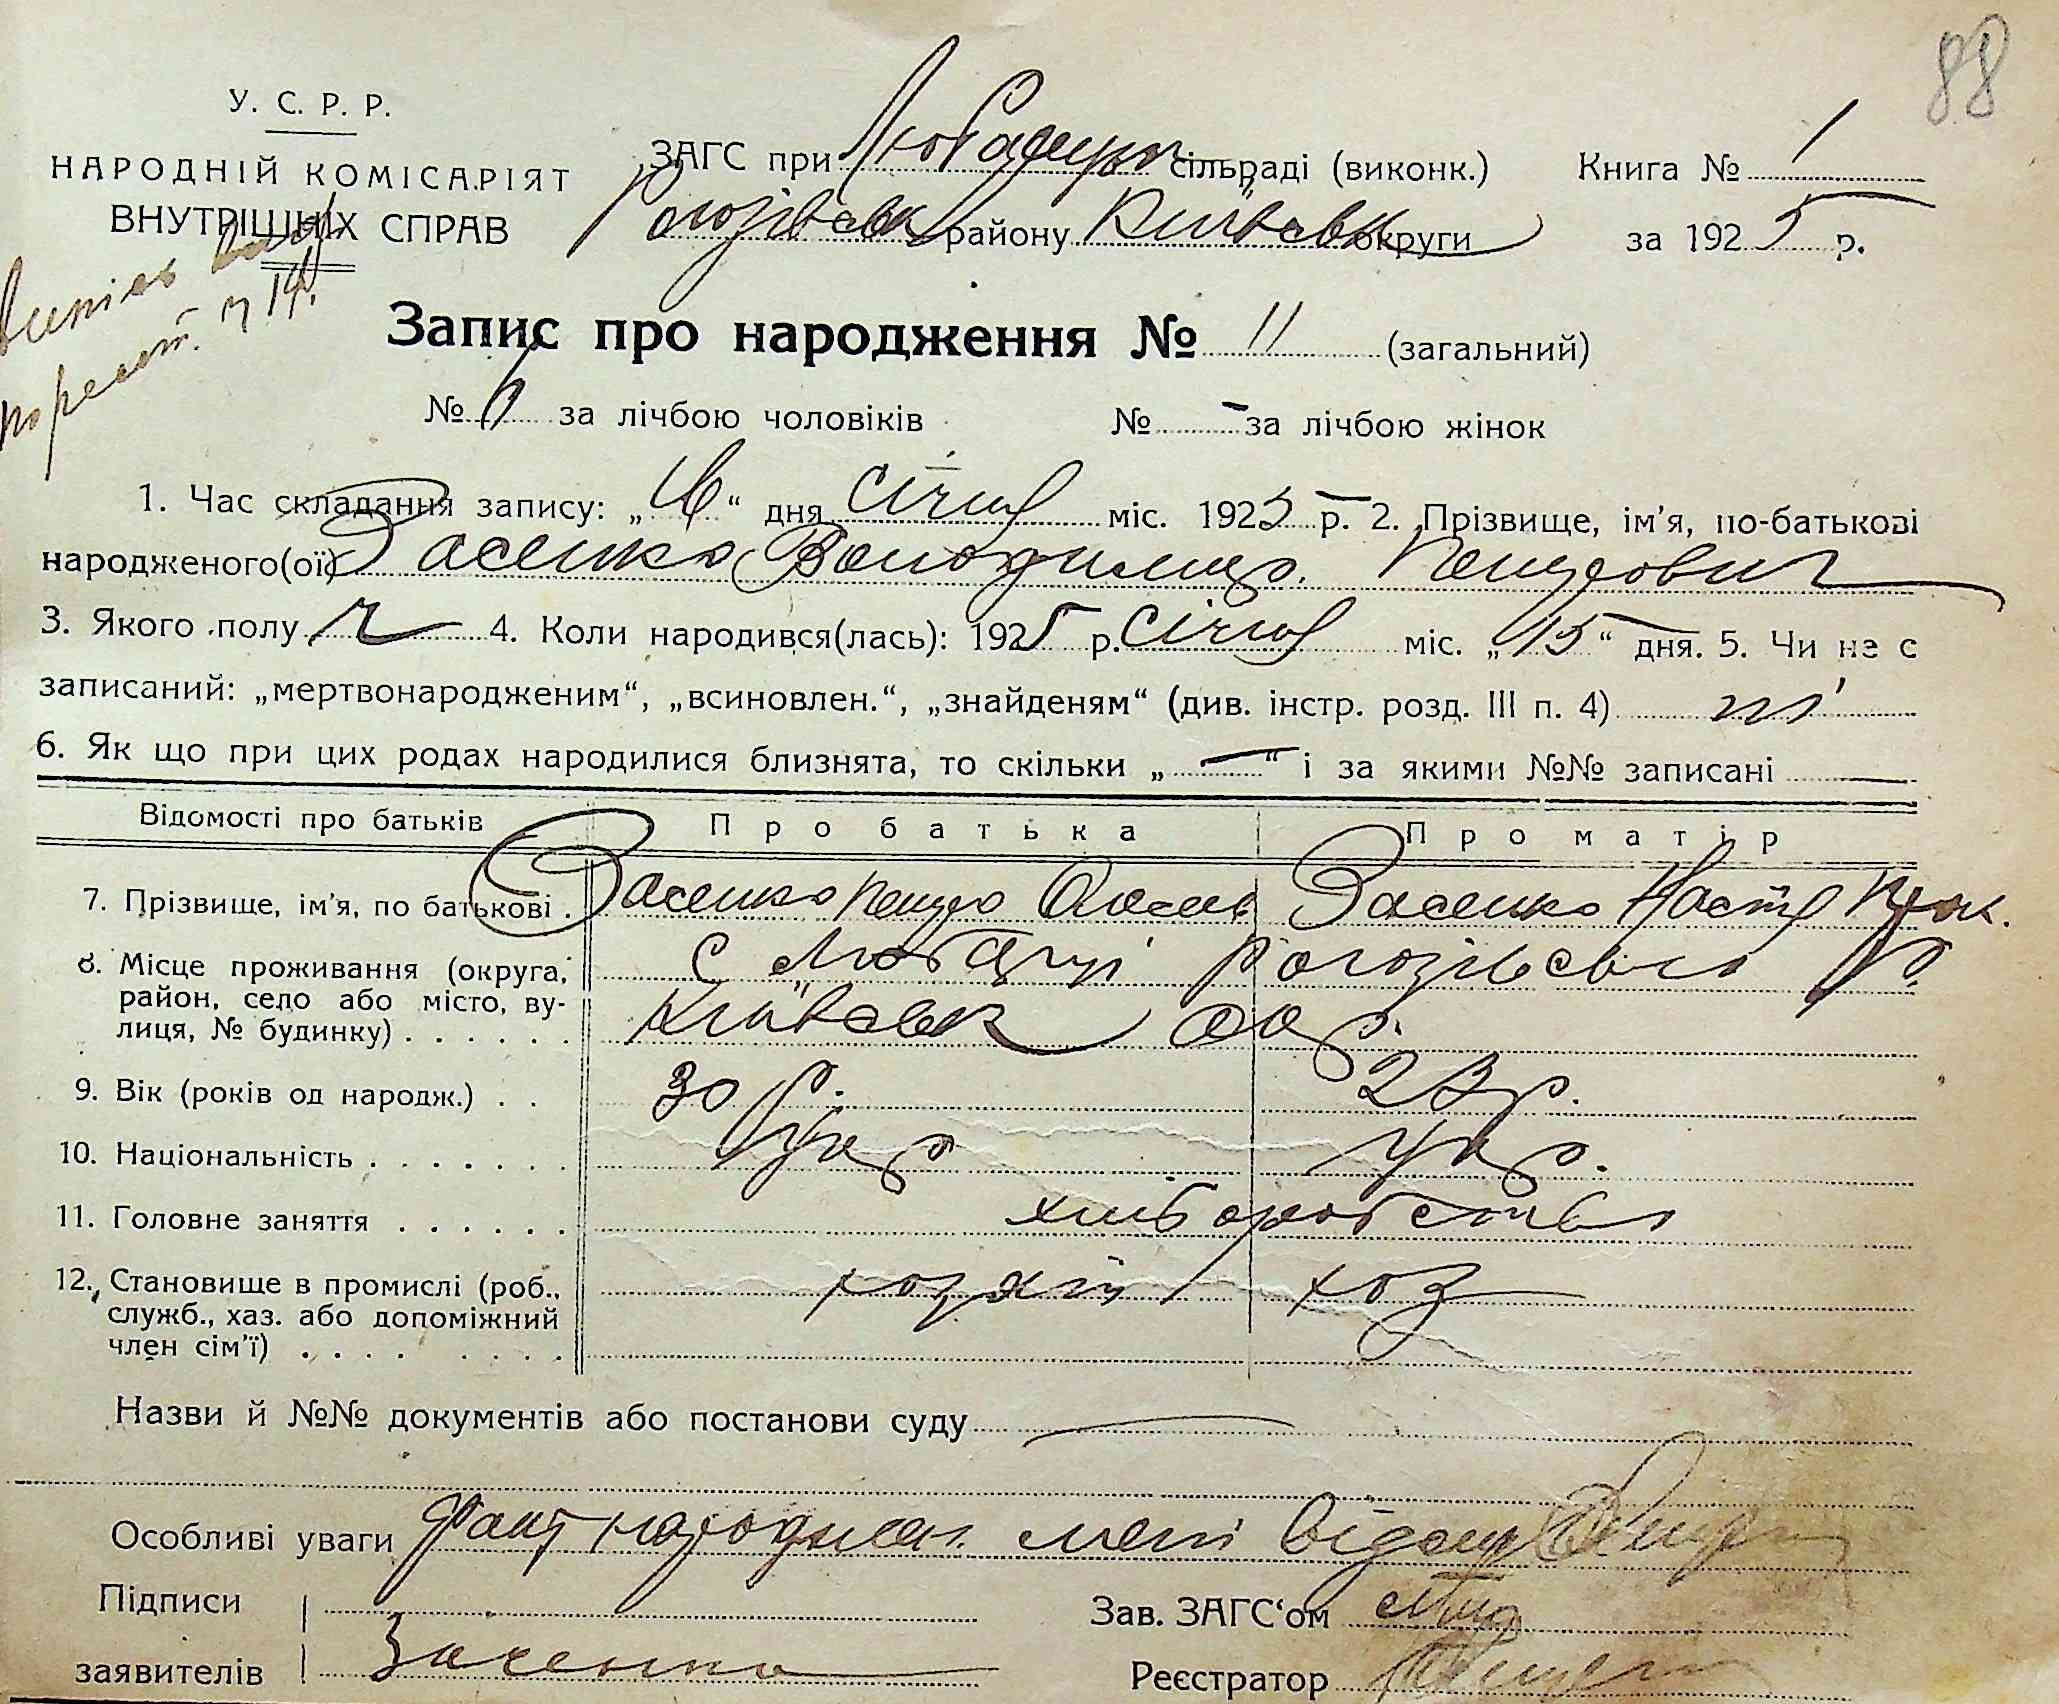 88
У. С. Р. Р.
НАРОДНІЙ КОМІСАРІЯТ
ВНУТРІШНІХ СПРАВ
ЗАГС при сільраді (виконк.) Книга № 1
Рогозівськ району Київськ округи за 1925 р.
Запис про народження № 11 (загальний)
№ 6 за лічбою чоловіків № – за лічбою жінок
1. Час складання запису: „ “ дня Січня міс. 1925 р. 2. Прізвище, ім'я, по-батькові
народженого(ої) Засенко Володимир
3. Якого полу ч 4. Коли народився(лась): 1925 р. Січня міс. „15“ дня. 5. Чи не є
записаний: „мертвонародженим“, „всиновлен.“, „знайденям“ (див. інстр. розд. III п. 4) ні
6. Як що при цих родах народилися близнята, то скільки „ — “ і за якими №№ записані
Відомості про батьків Про батька Про матір
7. Прізвище, ім'я, по батькові . Засенко Засенко Настя
8. Місце проживання (округа, с Любарці Рогозівсько р.
район, село або місто, ву-
лиця, № будинку) . . . . . . Київськ окр.
9. Вік (років од народж.) . . 30 р. 23 р.
10. Національність . . . . . . . Укр Укр.
11. Головне заняття . . . . . . хліборобство
12. Становище в промислі (роб., хозяїн хоз
служб., хаз. або допоміжний
член сім'ї) . . . . . . . .
Назви й №№ документів або постанови суду —
Особливі уваги Факт народжен. мені відом
Підписи Зав. ЗАГС'ом
заявителів Засенко Реєстратор